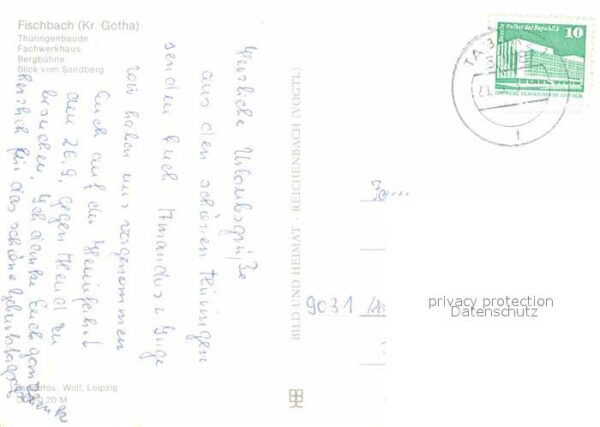 Fischbach (Kr. Gotha)
Thüringenbaude
Fachwerkhaus
Bergbühne
Blick vom Sandberg
Herzliche Urlaubsgrüße
aus den schönen Thüringen
senden Euch Amandus u. Inge
wir haben uns vorgenommen
Euch auf der Heimfahrt
den 26.9. gegen Abend zu
besuchen. Ich danke Euch ganz
herzlich für das schöne
Wolf, Leipzig
0,20 M
BILD UND HEIMAT · REICHENBACH (VOGTL)
Fam
9031
10
Berlin Palast der Republik
privacy protection
Datenschutz